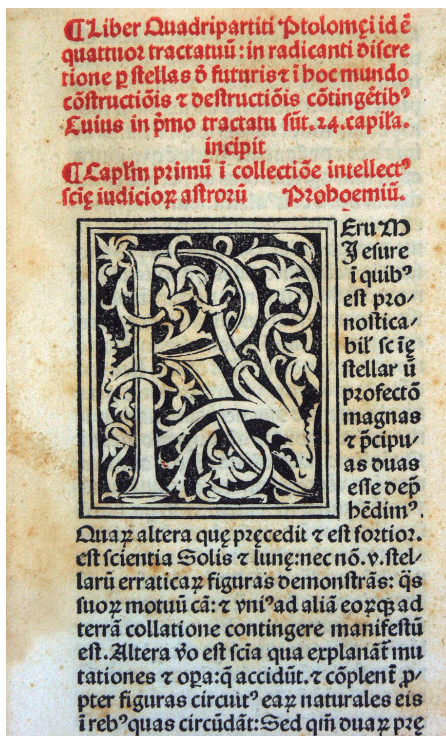 ¶Liber Quadripartiti Ptolomęi id ē
quattuor tractatuū: in radicanti discre
tione ꝑ stellas dˉ futuris ⁊ ī hoc mundo
cōstructiōis ⁊ destructiōis cōtingētibꝰ
Cuius in pˉmo tractatu sūt.24.capiła.
incipit
¶Capłm primū ī collectiōe intellectꝰ
scię iudicioꝝ astrorū Prohoemiū.
R
Eru M
I esure
ī quibꝰ
est pro⸗
nostica⸗
bił scię
stellar ū
profectō
magnas
⁊ pˉcipu⸗
as duas
esse dep̄
hēdimꝰ.
Quaꝝ altera quę pręcedit ⁊ est fortior.
est scientia Solis ⁊ lunę: nec nō.v.stel⸗
larū erraticaꝝ figuras demonstrās: qˉs
suoꝝ motuū cā: ⁊ vniꝰ ad aliā eoꝝqꝫ ad
terrā collatione contingere manifestū
est. Altera v̊o est scīa qua explanāt̄ mu
tationes ⁊ opa: q̄ accidūt. ⁊ cōplent̄ ꝓ⸗
pter figuras circuitꝰ eaꝝ naturales eis
ī rebꝰ quas circūdāt: Sed qm̄ duaꝝ prę